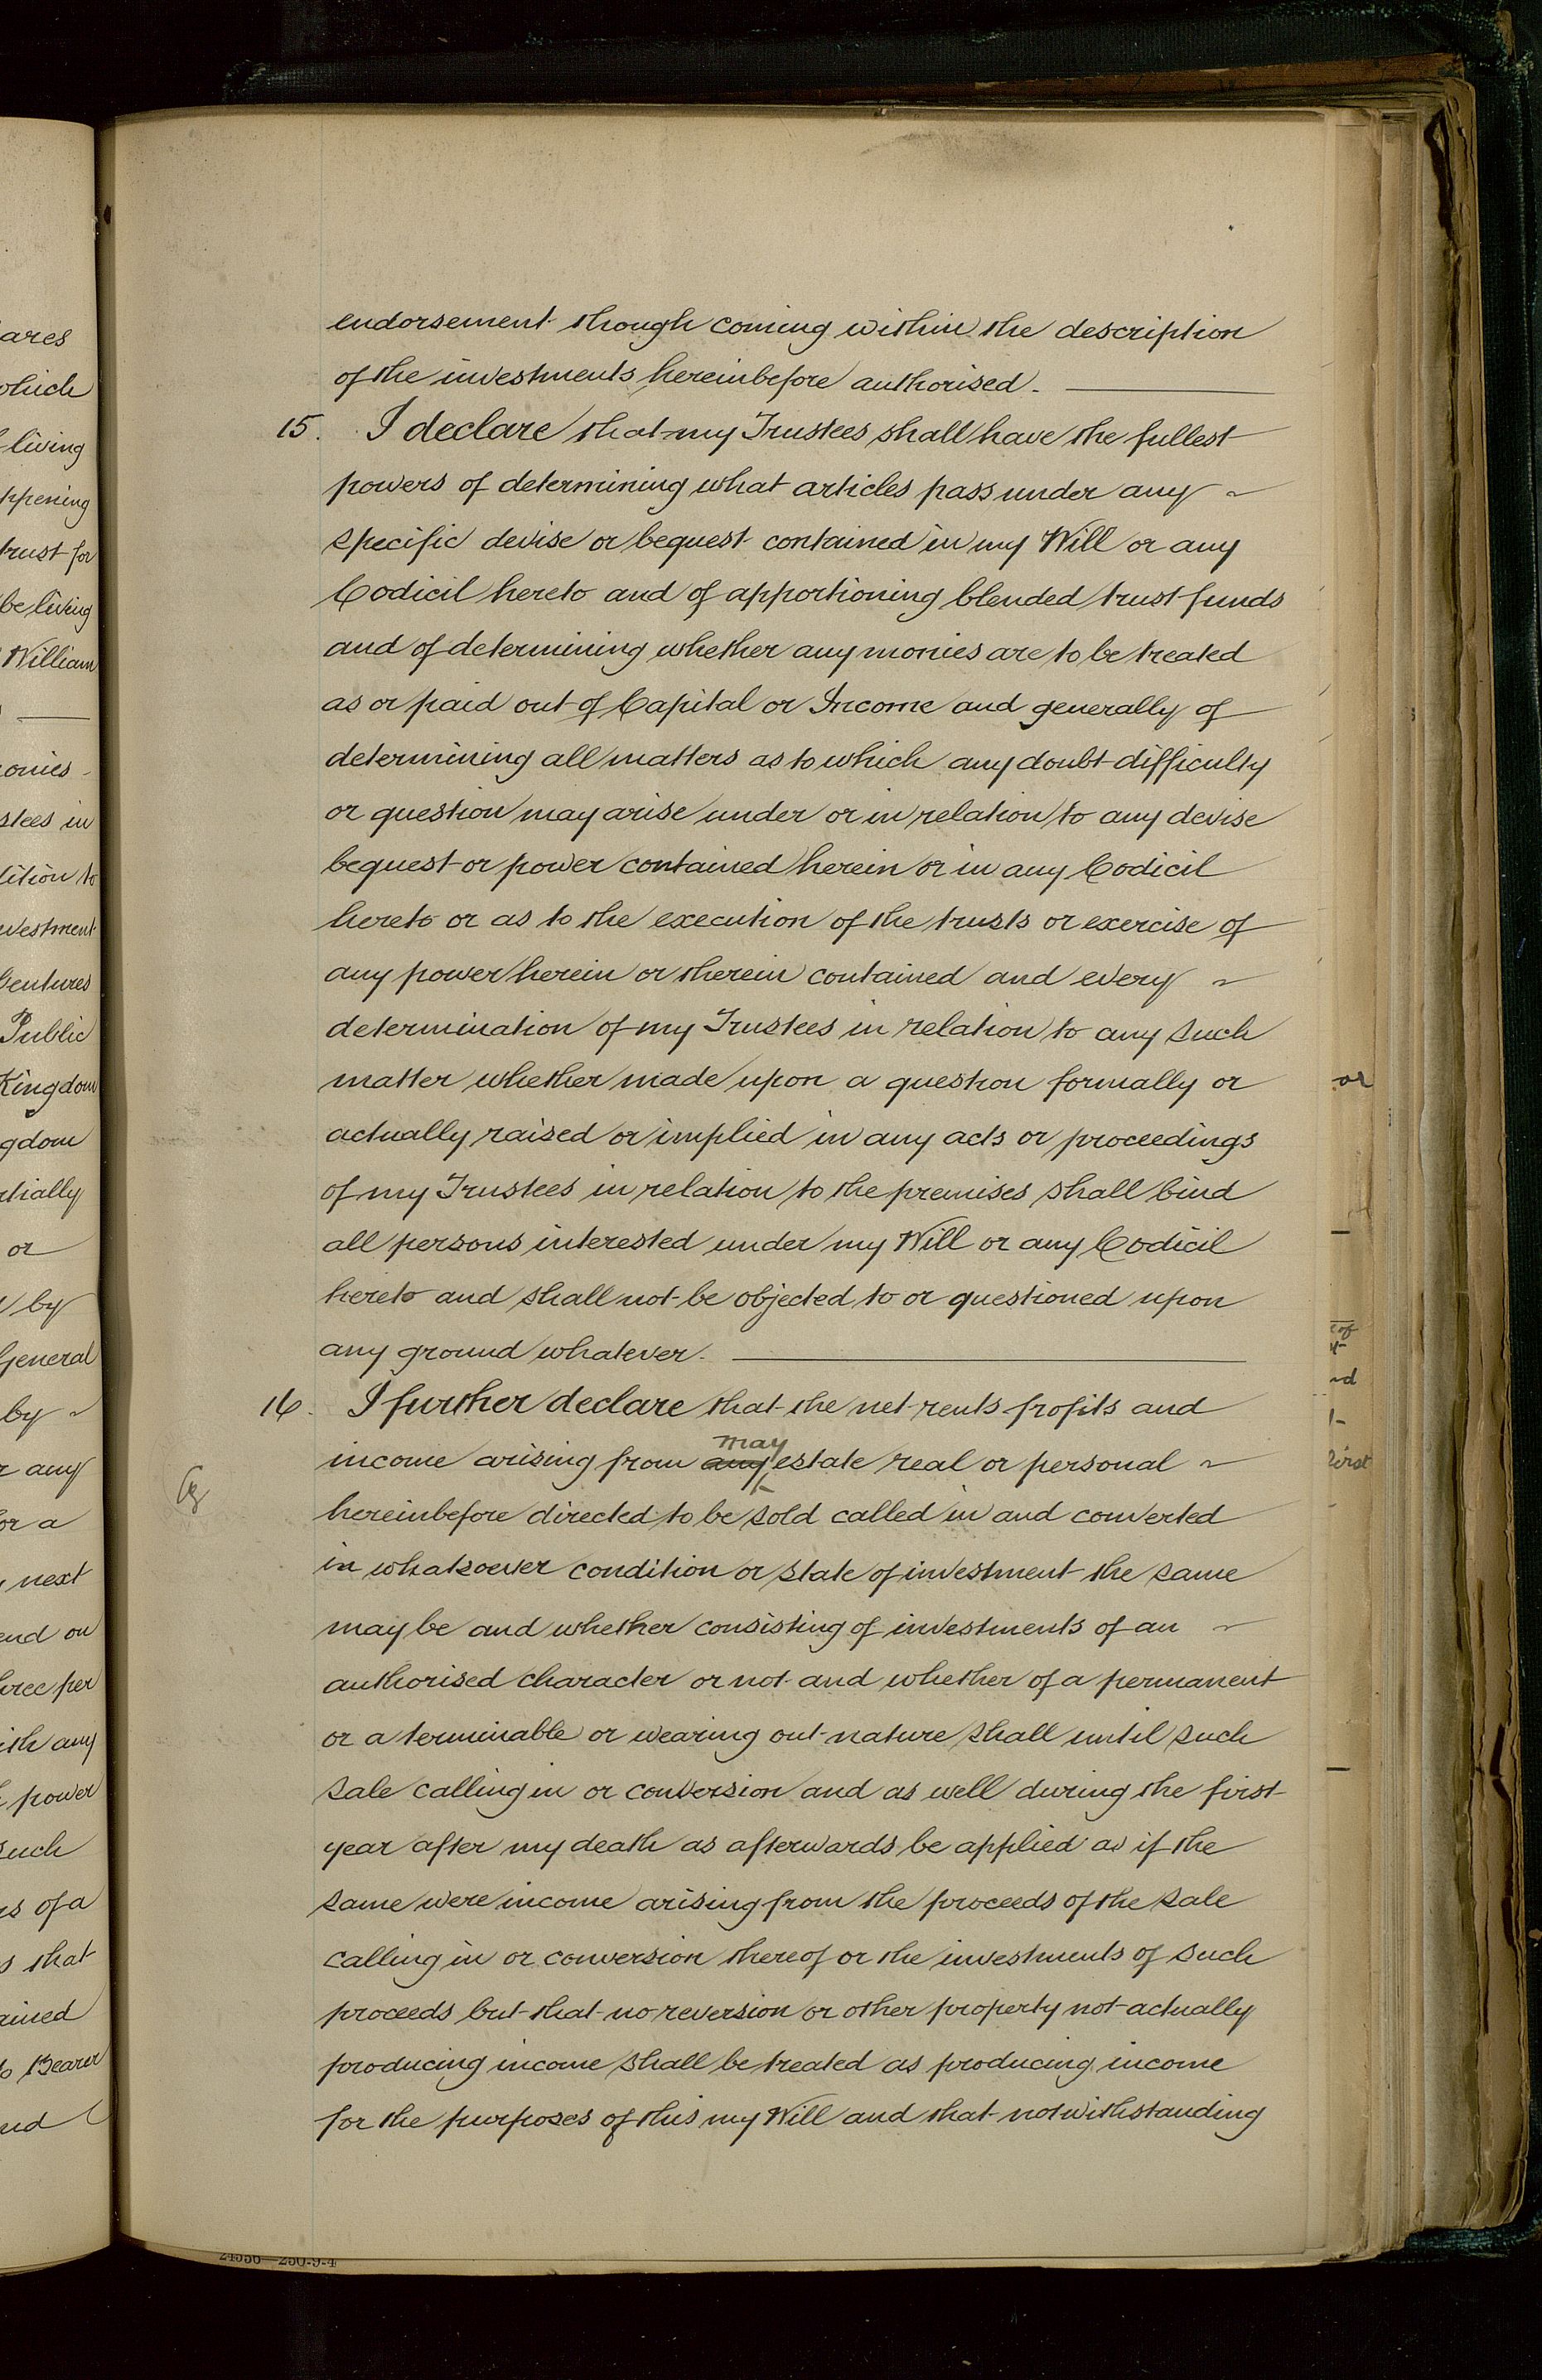 endorsement though coming within the description
of the investments hereinbefore authorised.
15. I declare that my Trustees shall have the fullest
powers of determining what articles pass under any
specific devise or bequest contained in my Will or any
Codicil hereto and of apportioning blended trust funds
and of determining whether any monies are to be treated
as or paid out of Capital or Income and generally of
determining all matters as to which any doubt difficulty
or question may arise under or in relation to any devise
bequest or power contained herein or in any Codicil
hereto or as to the execution of the trusts or exercise of
any power herein or therein contained and every
determination of my Trustees in relation to any such
matter whether made upon a question formally or
actually raised or implied in any acts or proceedings
of my Trustees in relation to the premises shall bind
all persons interested under my Will or any Codicil
hereto and shall not be objected to or questioned upon
any ground whatever.
16. I further declare that the net rents profits and
may
income arising from any estate real or personal
hereinbefore directed to be sold called in and converted
in whatsoever condition or state of investment the same
may be and whether consisting of investments of an
authorised character or not and whether of a permanent
or a terminable or wearing out nature shall until such
sale calling in or conversion and as well during the first
year after my death as afterwards be applied as if the
same were income arising from the proceeds of the sale
calling in or conversion thereof or the investments of such
proceeds but that no reversion or other property not actually
producing income shall be treated as producing income
for the purposes of this my Will and that notwithstanding
ares
which
living
trust for
be living
William
stees in
Public
Kingdom
or
by
General
by
any
or a
next
end on
per
any
power
such
of a
that
Bearer